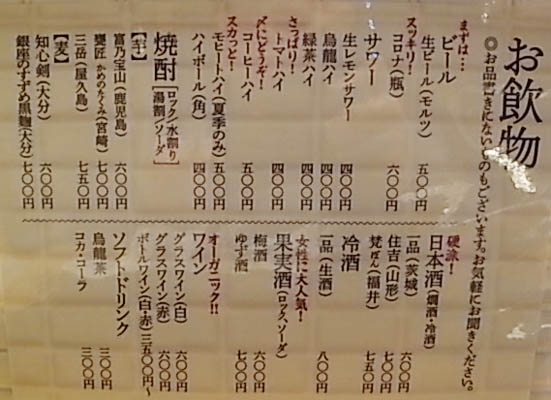 お飲物
◎お品書きにないものもございます。お気軽にお聞きください。
まずは…
ビール
生ビール(モルツ) 五〇〇円
スッキリ!
コロナ(瓶) 六〇〇円
サワー
生レモンサワー 四〇〇円
烏龍ハイ 四〇〇円
緑茶ハイ 四〇〇円
さっぱり!
トマトハイ 四〇〇円
〆にどうぞ!
コーヒーハイ 五〇〇円
スカっと!
モヒートハイ(夏季のみ) 五〇〇円
ハイボール(角) 四〇〇円
焼酎[ロック/水割り/湯割/ソーダ]
【芋】
富乃宝山(鹿児島) 六〇〇円
甕匠 かめのたくみ(宮崎) 七〇〇円
三岳(屋久島) 七五〇円
【麦】
知心剣(大分) 六〇〇円
銀座のすずめ黒麹(大分) 七〇〇円
硬派!
日本酒(燗酒・冷酒)
一品(茨城) 六〇〇円
住吉(山形) 七〇〇円
梵ぼん(福井) 七五〇円
冷酒
一品(生酒) 八〇〇円
女性に大人気!
果実酒(ロック、ソーダ)
梅酒 六〇〇円
ゆず酒 七〇〇円
オーガニック!!
ワイン
グラスワイン(白) 六〇〇円
グラスワイン(赤) 六〇〇円
ボトルワイン(白・赤) 三五〇〇円〜
ソフトドリンク
烏龍茶 三〇〇円
コカ・コーラ 三〇〇円